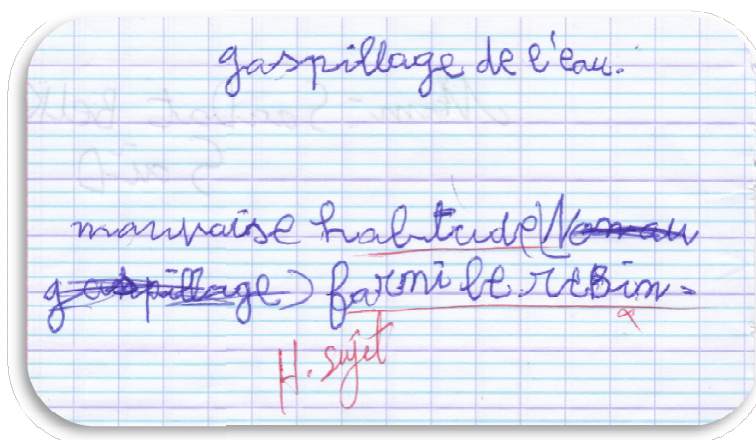 gaspillage de l'eau.
mauvaise habitude (Non au
gaspillage) farmi le rebin.
H. sujet